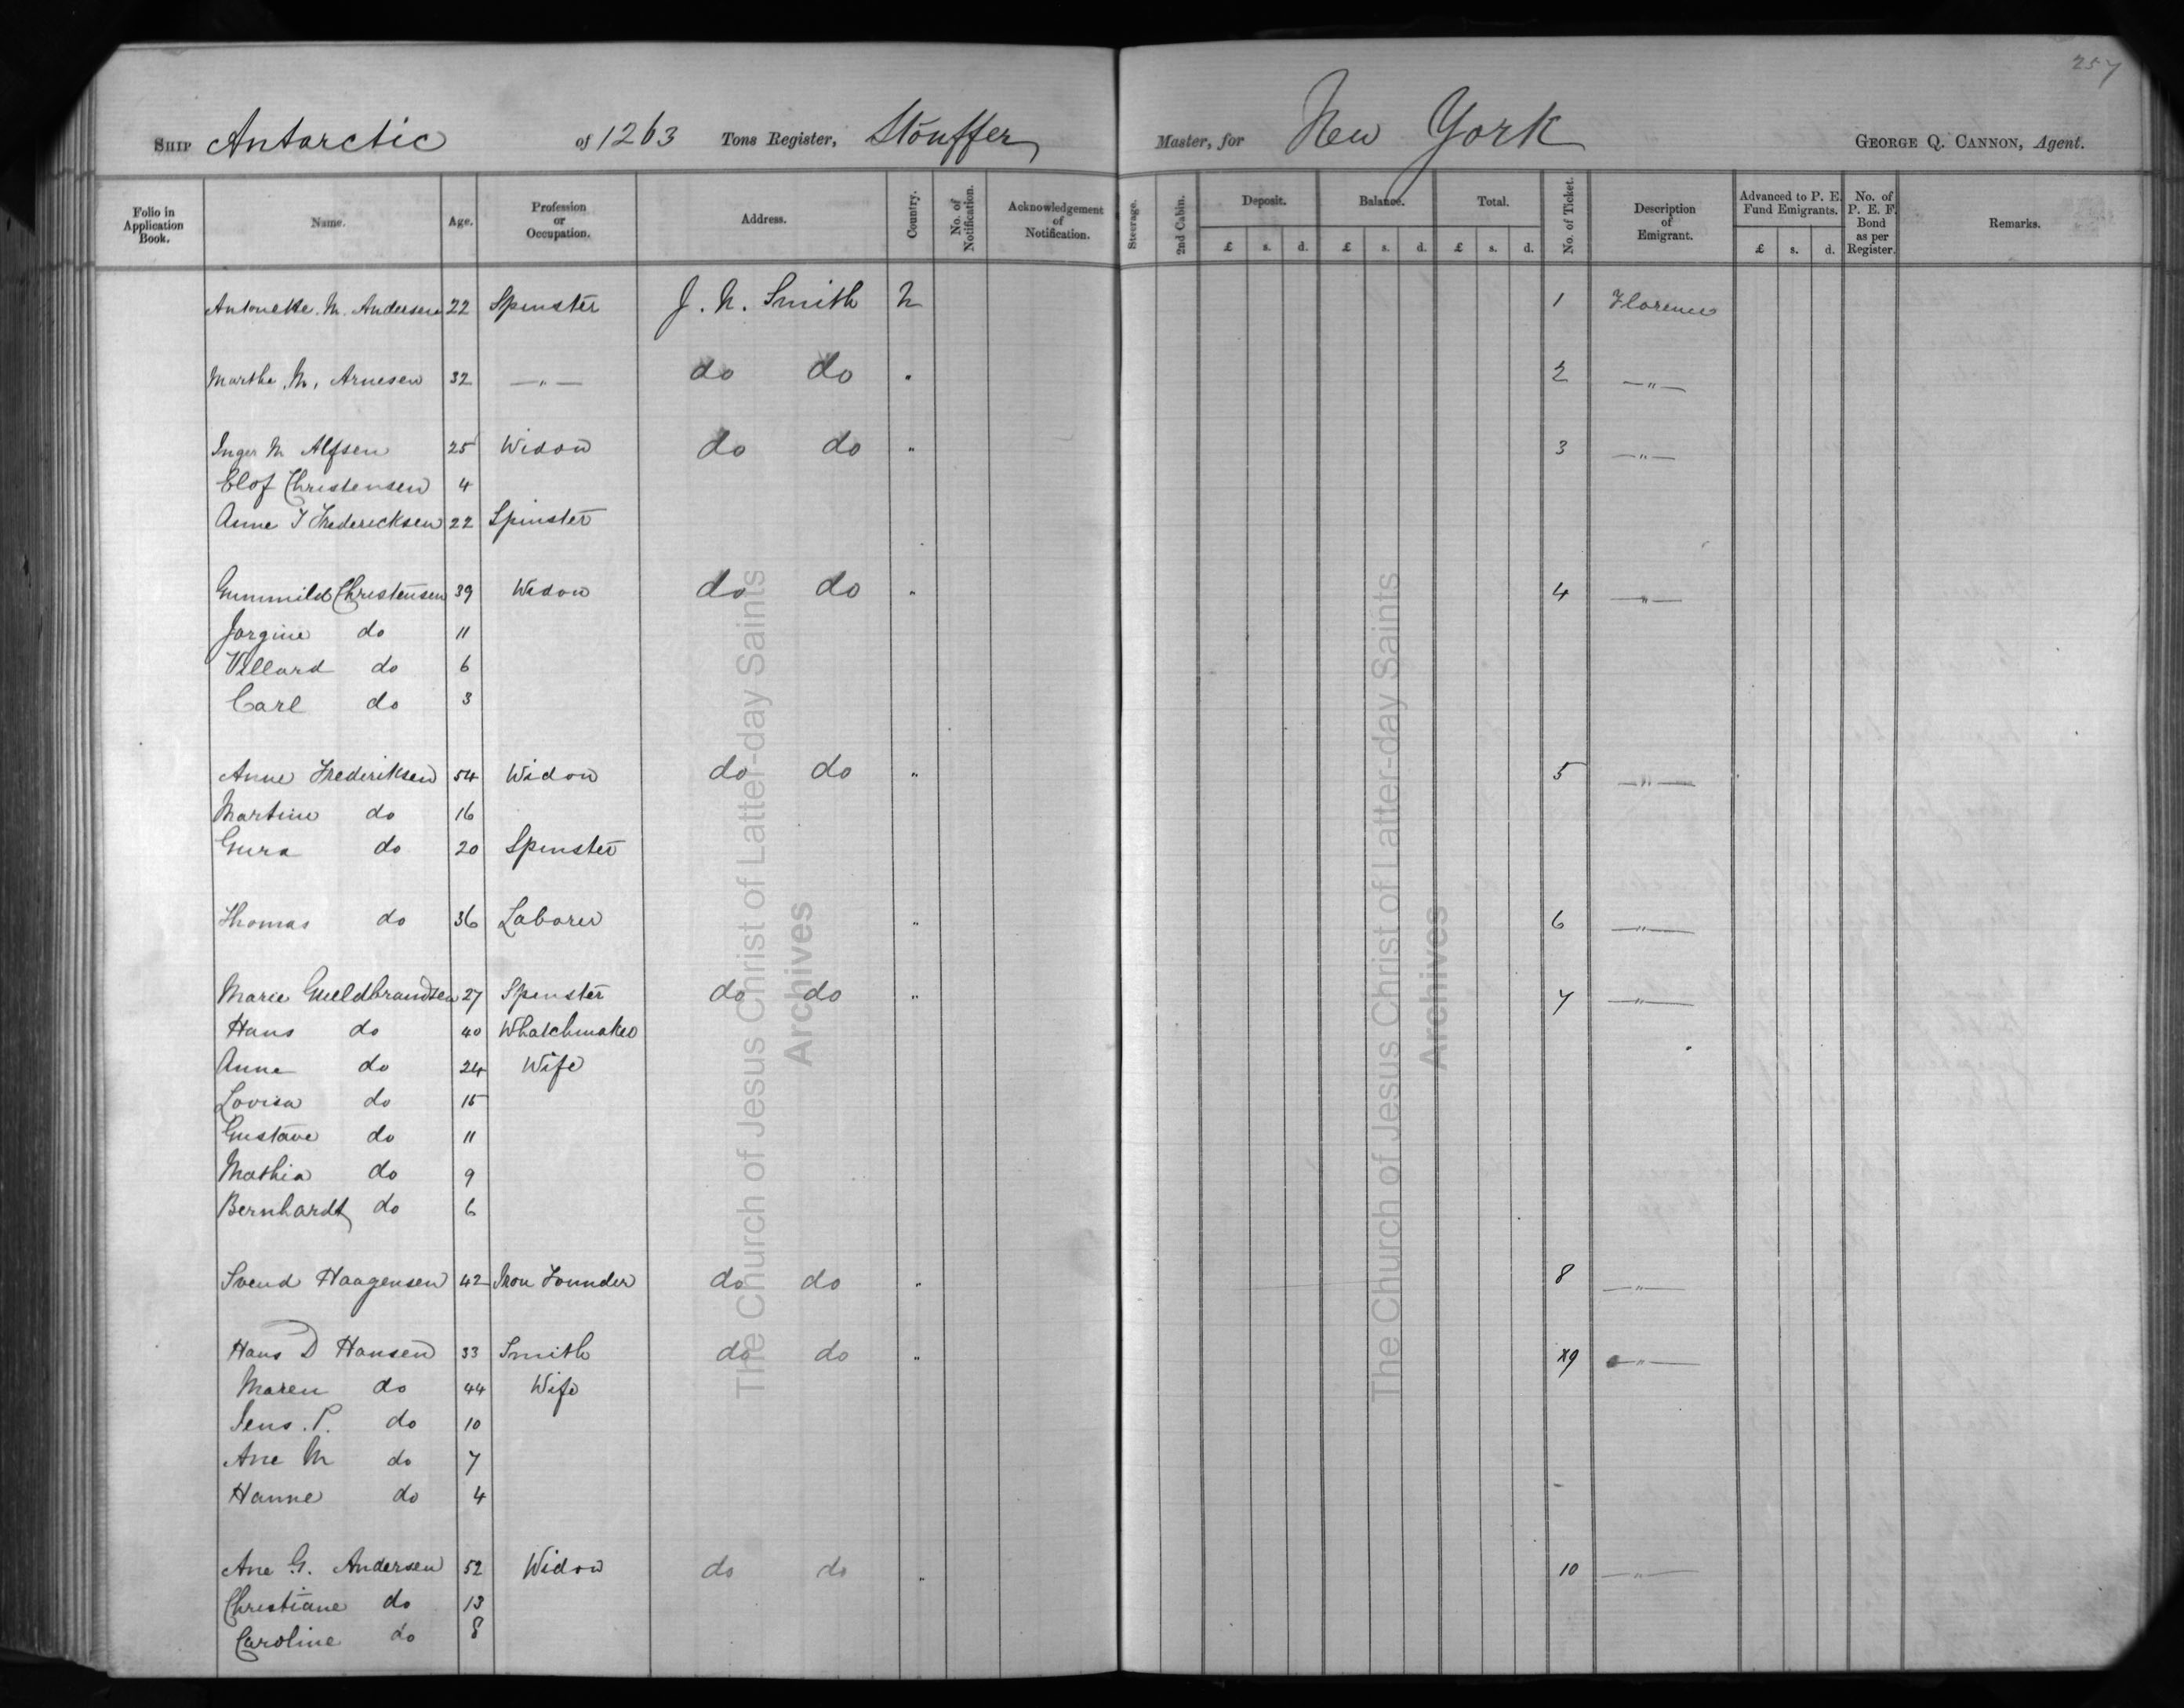 257
SHIP Antarctic of 1263 Tons Register, Stouffer Master, for New York GEORGE Q. CANNON, Agent.
Folio in Application Book. Name. Age. Profession or Occupation. Address. Country. No. of Notification. Acknowledgement of Notification. Steerage. 2nd Cabin. Deposit. Balance. Total. No. of Ticket. Description of Emigrant. Advanced to P. E. Fund Emigrants. No. of P. E. F. Bond as per Register. Remarks.
£ s. d. £ s. d. £ s. d. £ s. d.
Antonette. M. Andersen 22 Spinster J. N. Smith N 1 Florence
Marthe. M. Arnesen 32 —"— do do " 2 —"—
Inger M Alfsen 25 Widow do do " 3 —"—
Elof Christensen 4
Anne T Fredericksen 22 Spinster
Gunnild Christensen 39 Widow do do " 4 —"—
Jorgine do 11
Villard do 6
Carl do 3
Anne Frederiksen 54 Widow do do " 5 —"—
Martine do 16
Gura do 20 Spinster
Thomas do 36 Laborer " 6 —"—
Marie Gueldbrandsen 27 Spinster do do " 7 —"—
Hans do 40 Whatchmaker
Anne do 24 Wife
Lovisa do 15
Gustave do 11
Mathia do 9
Bernhardt do 6
Svend Haagensen 42 Iron Founder do do " 8 —"—
Hans D Hansen 33 Smith do do " 9 —"—
Maren do 44 Wife
Jens. P. do 10
Ane M do 7
Hanne do 4
Ane G. Andersen 52 Widow do do " 10 —"—
Christiane do 13
Caroline do 8
The Church of Jesus Christ of Latter-day Saints
Archives
The Church of Jesus Christ of Latter-day Saints
Archives